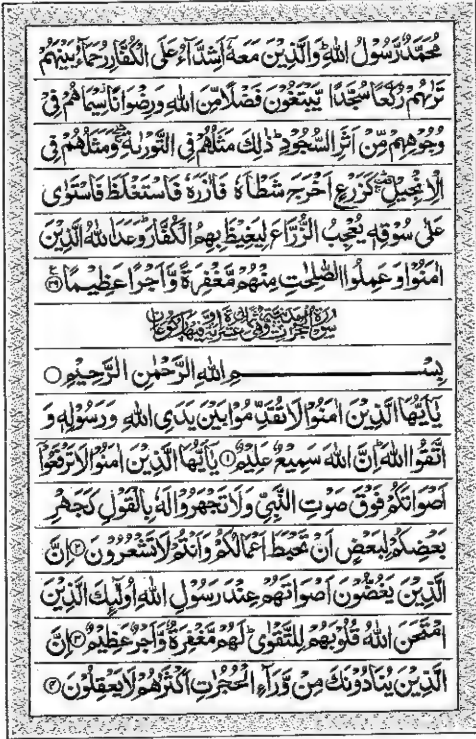 مُحَمَّدٌ رَّسُوْلُ اللهِ ؕ وَالَّذِيْنَ مَعَهٗۤ اَشِدَّآءُ عَلَى الْكُفَّارِ رُحَمَآءُ بَيْنَهُمْ
تَرٰىهُمْ رُكَّعًا سُجَّدًا يَّبْتَغُوْنَ فَضْلًا مِّنَ اللهِ وَرِضْوَانًا ؗ سِيْمَاهُمْ فِيْ
وُجُوْهِهِمْ مِّنْ اَثَرِ السُّجُوْدِ ؕ ذٰلِكَ مَثَلُهُمْ فِي التَّوْرٰىةِ ۛۖ وَمَثَلُهُمْ فِي
الْاِنْجِيْلِ ۛ۫ كَزَرْعٍ اَخْرَجَ شَطْاَهٗ فَاٰزَرَهٗ فَاسْتَغْلَظَ فَاسْتَوٰى
عَلٰى سُوْقِهٖ يُعْجِبُ الزُّرَّاعَ لِيَغِيْظَ بِهِمُ الْكُفَّارَ ؕ وَعَدَ اللهُ الَّذِيْنَ
اٰمَنُوْا وَعَمِلُوا الصّٰلِحٰتِ مِنْهُمْ مَّغْفِرَةً وَّاَجْرًا عَظِيْمًا ۲۹
بِسْمِ اللهِ الرَّحْمٰنِ الرَّحِيْمِ
يٰۤاَيُّهَا الَّذِيْنَ اٰمَنُوْا لَا تُقَدِّمُوْا بَيْنَ يَدَيِ اللهِ وَرَسُوْلِهٖ وَ
اتَّقُوا اللهَ ؕ اِنَّ اللهَ سَمِيْعٌ عَلِيْمٌ ۱ يٰۤاَيُّهَا الَّذِيْنَ اٰمَنُوْا لَا تَرْفَعُوْۤا
اَصْوَاتَكُمْ فَوْقَ صَوْتِ النَّبِيِّ وَلَا تَجْهَرُوْا لَهٗ بِالْقَوْلِ كَجَهْرِ
بَعْضِكُمْ لِبَعْضٍ اَنْ تَحْبَطَ اَعْمَالُكُمْ وَاَنْتُمْ لَا تَشْعُرُوْنَ ۲ اِنَّ
الَّذِيْنَ يَغُضُّوْنَ اَصْوَاتَهُمْ عِنْدَ رَسُوْلِ اللهِ اُولٰٓئِكَ الَّذِيْنَ
امْتَحَنَ اللهُ قُلُوْبَهُمْ لِلتَّقْوٰى ؕ لَهُمْ مَّغْفِرَةٌ وَّاَجْرٌ عَظِيْمٌ ۳ اِنَّ
الَّذِيْنَ يُنَادُوْنَكَ مِنْ وَّرَآءِ الْحُجُرٰتِ اَكْثَرُهُمْ لَا يَعْقِلُوْنَ ۴